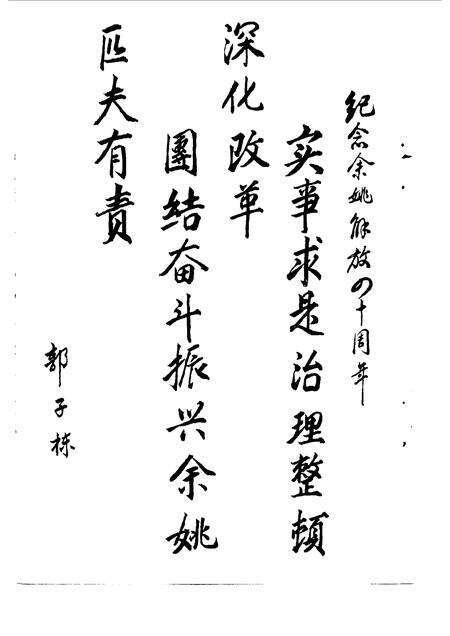 纪念余姚解放四十周年
实事求是治理整顿
深化改革
團结奋斗振兴余姚
匹夫有責
郭子栋